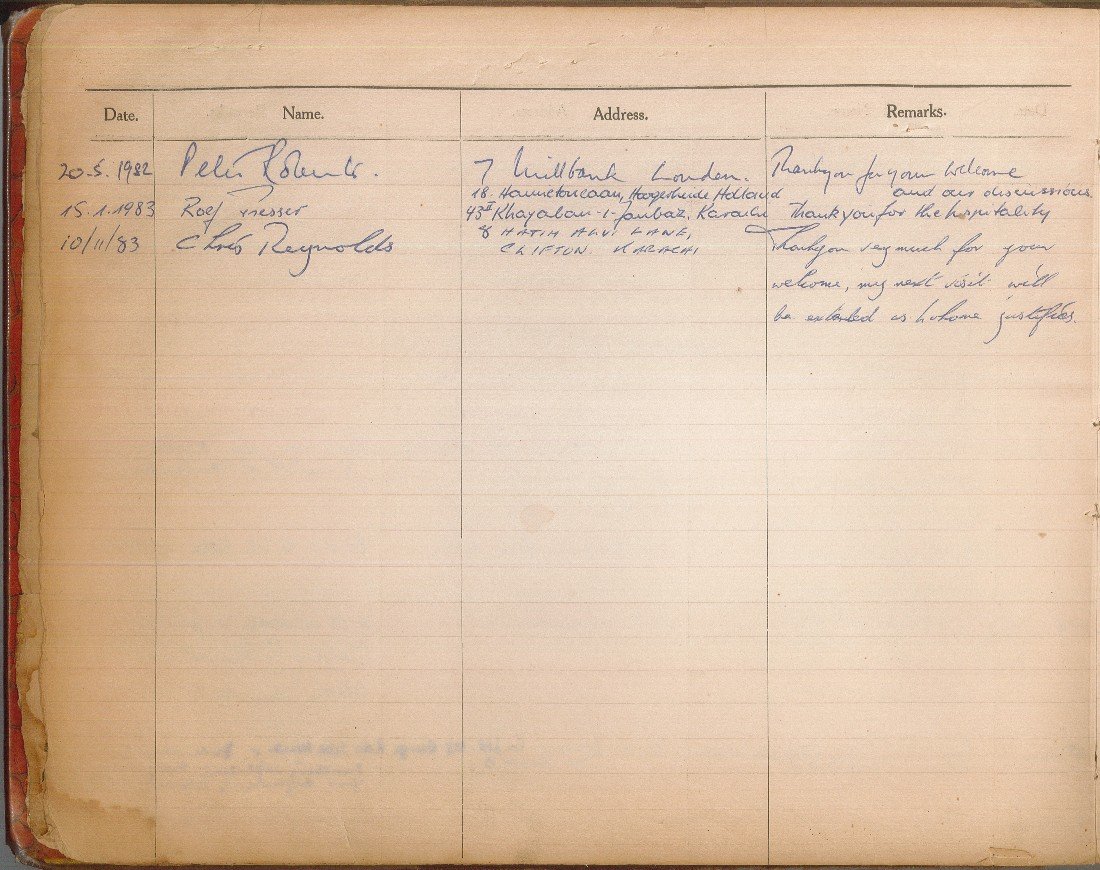 Date. Name. Address. Remarks.
20.5.1982 Peter Roberts. 7 Millbank London. Thankyou for your welcome
and our discussions
18. Hoogerheide Holland
15.1.1983 Roef 43 Khayaban-i-Janbaz, Karachi Thankyou for the hospitality
10/11/83 Chris Reynolds 8 HATIM ALVI LANE, Thankyou very much for your
CLIFTON KARACHI
welcome, my next visit will
be extended as justifies.